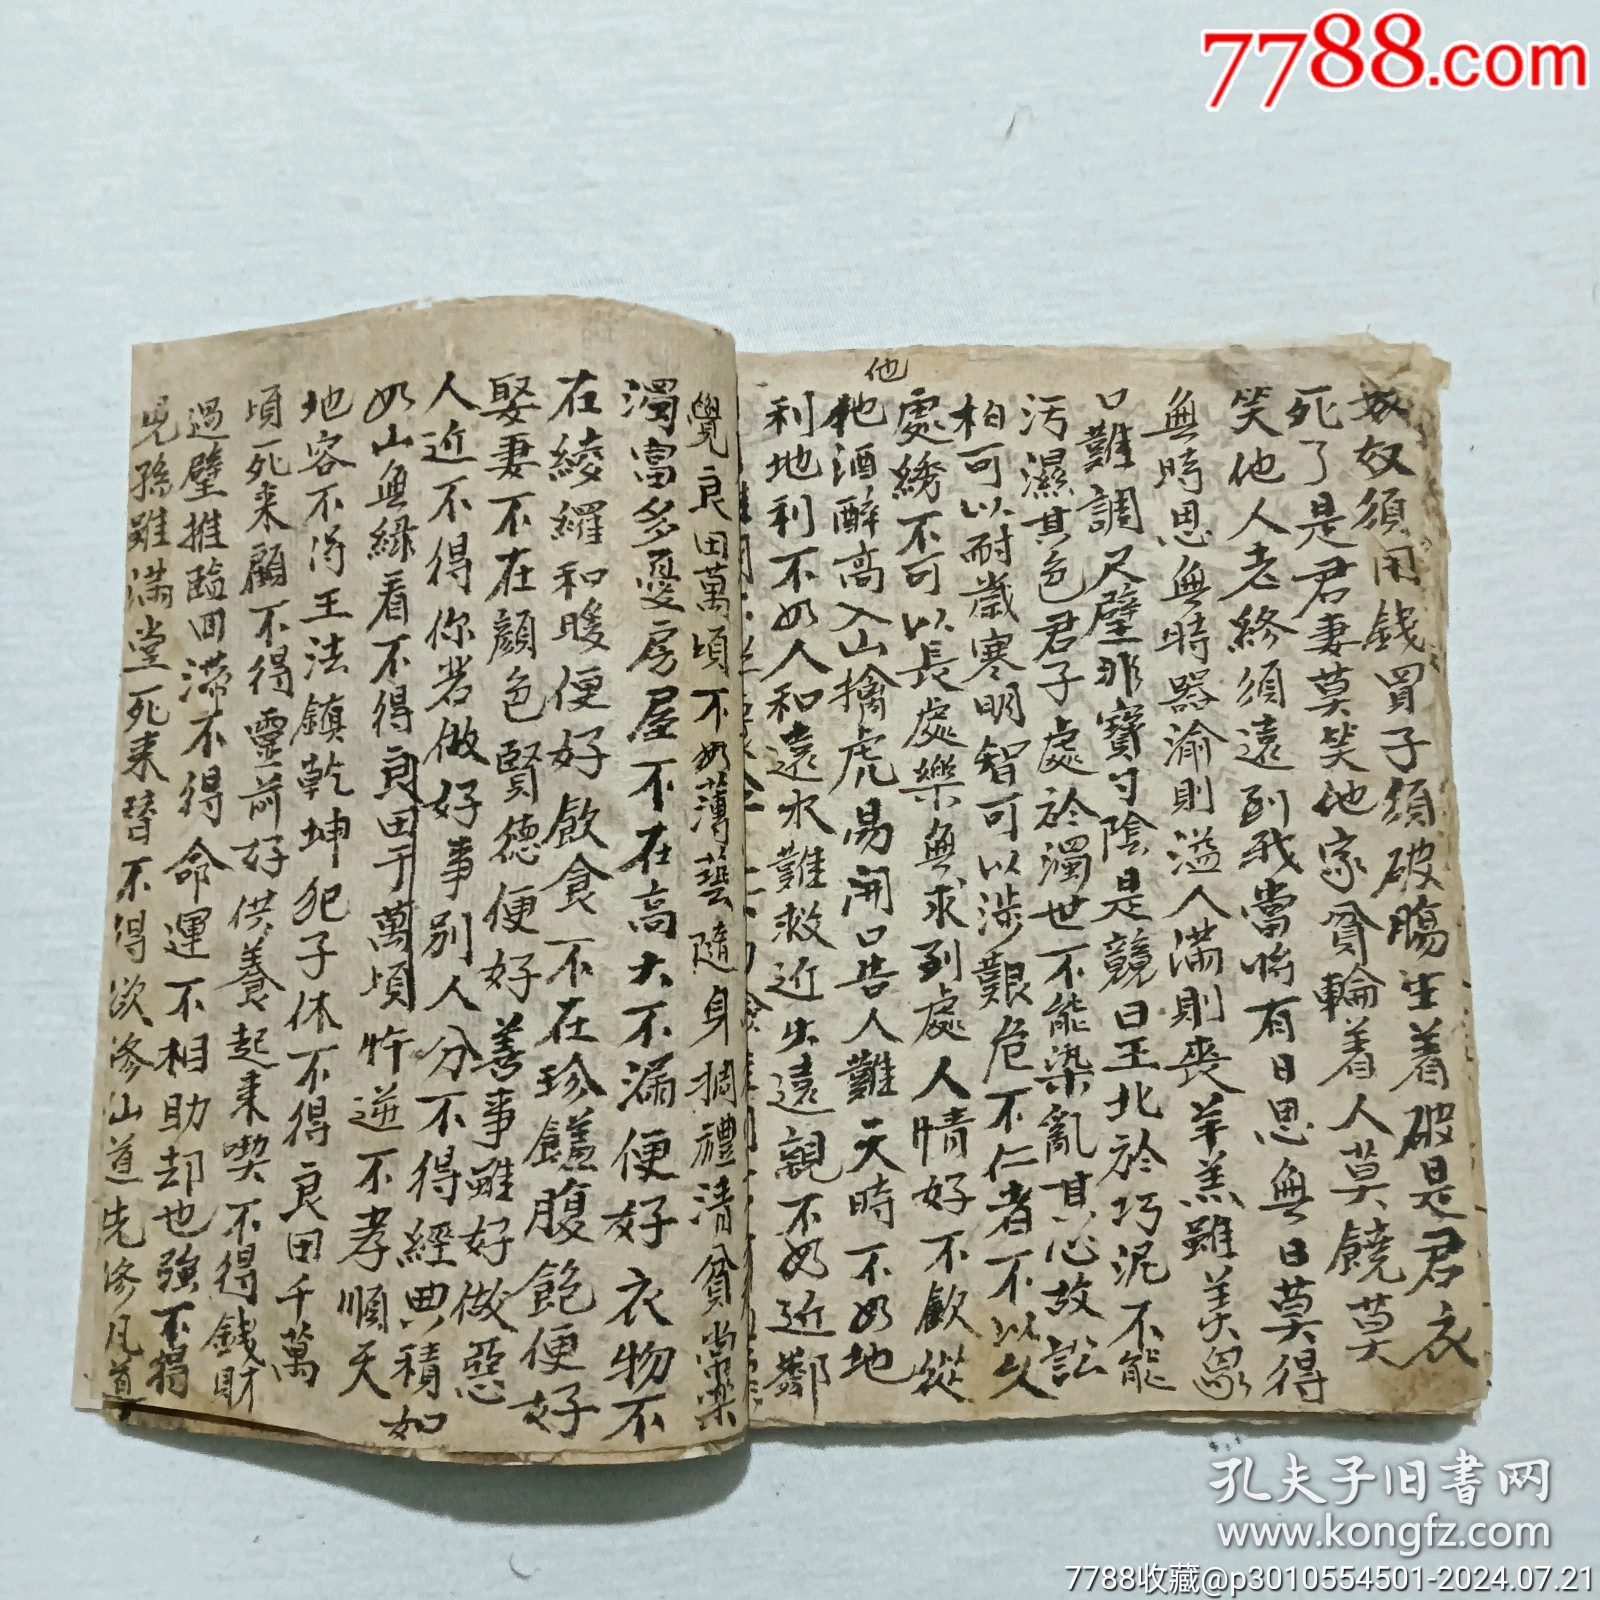 7788.com
他
奴奴須用錢買子須破腸坐着破是君衣
死了是君妻莫笑他家貧輪着人莫饒莫
笑他人老終須遠到我當嗡有日思無日莫得
無時思無時器渝則溢人滿則喪羊羔雖美衆
口難調尺璧非寶寸陰是競日玉北於巧泥不能
污濕其色君子處於濁世不能染亂其心故訟
柏可以耐歲寒明智可以涉艱危不仁者不以久
處綉不可以長處樂無求到處人情好不飲從
牠酒醉高入山擒虎易開口告人難天時不如地
利地利不如人和遠水難救近火遠親不如近鄰
覺良田萬頃不如薄藝隨身搁禮清貧常樂
濁富多憂房屋不在高大不漏便好衣物不
在綾羅和暖便好飲食不在珍饈腹飽便好
娶妻不在顏色賢德便好善事雖好做惡
人近不得你若做好事別人分不得經典積如
如山無緣看不得良田千萬頃忤逆不孝順天
地容不得王法鎮乾坤犯子休不得良田千萬
頃死来顧不得靈前好供養起来喫不得錢財
過壁推臨回滞不得命運不相助却也強不得
兒孫雖滿堂死来替不得欲修仙道先修凡道
孔夫子旧书网
www.kongfz.com
7788收藏@p3010554501-2024.07.21